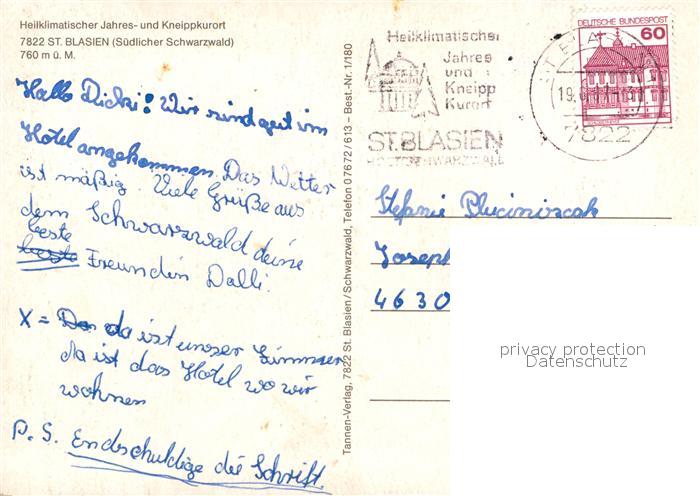 Heilklimatischer Jahres- und Kneippkurort
7822 ST. BLASIEN (Südlicher Schwarzwald)
760 m ü. M.
Hallo Dicki! Wir sind gut im
Hotel angekommen. Das Wetter
ist mäßig. Viele Grüße aus
dem Schwarzwald deine
beste
beste Freundin Dalli.
X = Da da ist unser Zimmer
da ist das Hotel wo wir
wohnen
P.S. Endschuldige die Schrift
Tannen-Verlag, 7822 St. Blasien/Schwarzwald, Telefon 07672/613 – Best.-Nr. 1/180
Heilklimatischer
Jahres
und
Kneipp
Kurort
ST. BLASIEN
HOCHSCHWARZWALD
7822
DEUTSCHE BUNDESPOST
60
Stefanie
Joseph
4630
privacy protection
Datenschutz